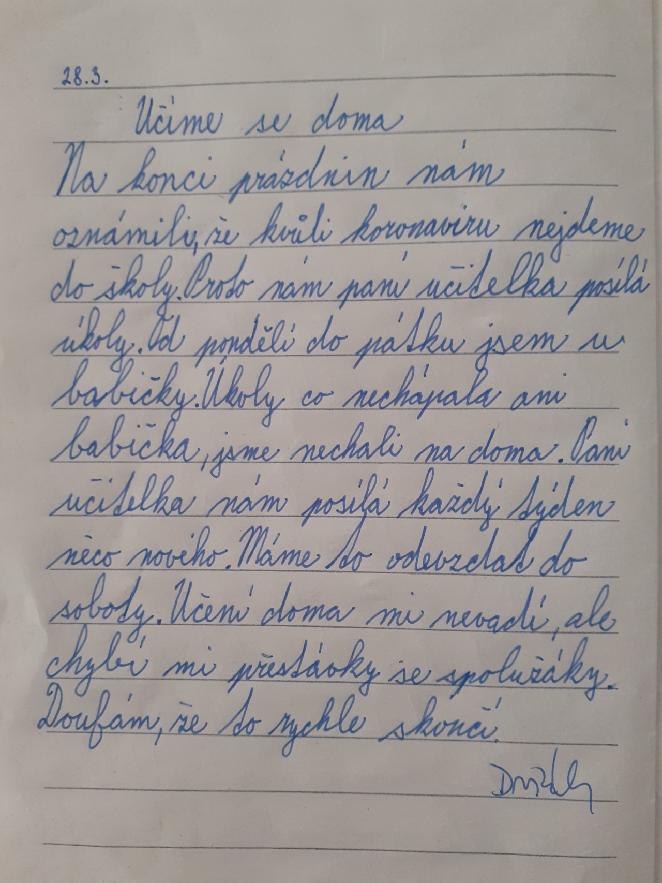 28.3.
Učíme se doma
Na konci prázdnin nám
oznámili, že kvůli koronaviru nejdeme
do školy. Proto nám paní učitelka posílá
úkoly. Od pondělí do pátku jsem u
babičky. Úkoly co nechápala ani
babička, jsme nechali na doma. Paní
učitelka nám posílá každý týden
něco nového. Máme to odevzdat do
soboty. Učení doma mi nevadí, ale
chybí mi přestávky se spolužáky.
Doufám, že to rychle skončí.